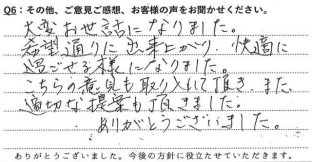 Q6:その他、ご意見ご感想、お客様の声をお聞かせください。
大変お世話になりました。
希望通りに出来上がり、快適に
過ごせる様になりました。
こちらの意見も取り入れて頂き、また、
適切な提案も頂きました。
ありがとうございました。
ありがとうございました。今後の方針に役立たせていただきます。